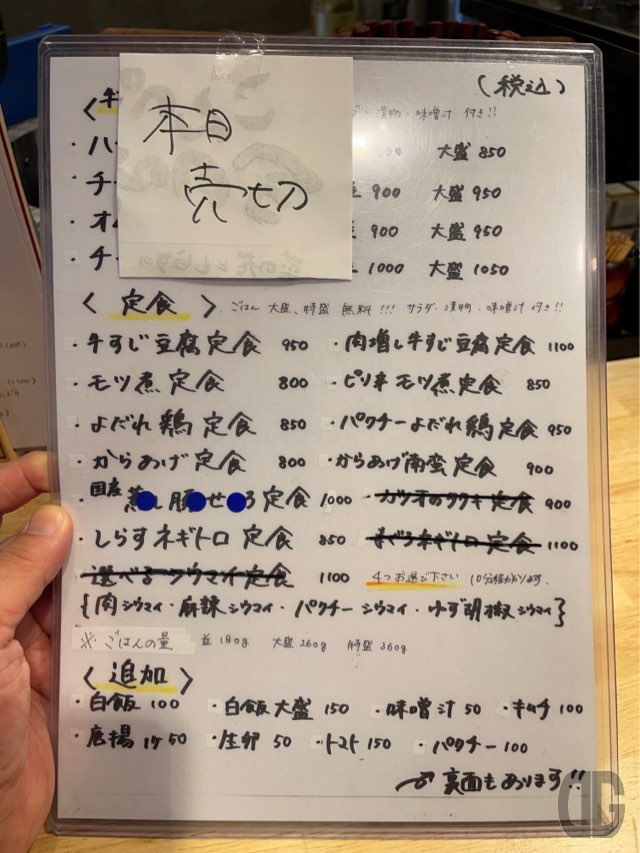 (税込)
本日
売切
漬物・味噌汁 付き!!
・ハ 大盛 850
・チ 900 大盛 950
・オム 900 大盛 950
・チ 1000 大盛 1050
〈 定食 〉 ごはん 大盛、特盛 無料!!! サラダ・漬物・味噌汁 付き!!
・牛すじ豆腐定食 950 ・肉増し牛すじ豆腐定食 1100
・モツ煮定食 800 ・ピリ辛モツ煮定食 850
・よだれ鶏定食 850 ・パクチーよだれ鶏定食 950
・からあげ定食 800 ・からあげ南蛮定食 900
・国産 蒸し せ ろ定食 1000 ・カツオのタタキ定食 900
・しらすネギトロ定食 850 ・まぐろネギトロ定食 1100
・選べるシウマイ定食 1100 4つお選び下さい 10分程かかります。
{肉シウマイ・麻辣シウマイ・パクチーシウマイ・ゆず胡椒シウマイ}
※ごはんの量 並180g 大盛260g 特盛360g
〈 追加 〉
・白飯 100 ・白飯大盛 150 ・味噌汁 50 ・キムチ 100
・唐揚 1ケ 50 ・生卵 50 ・トマト 150 ・パクチー 100
裏面もあります!!